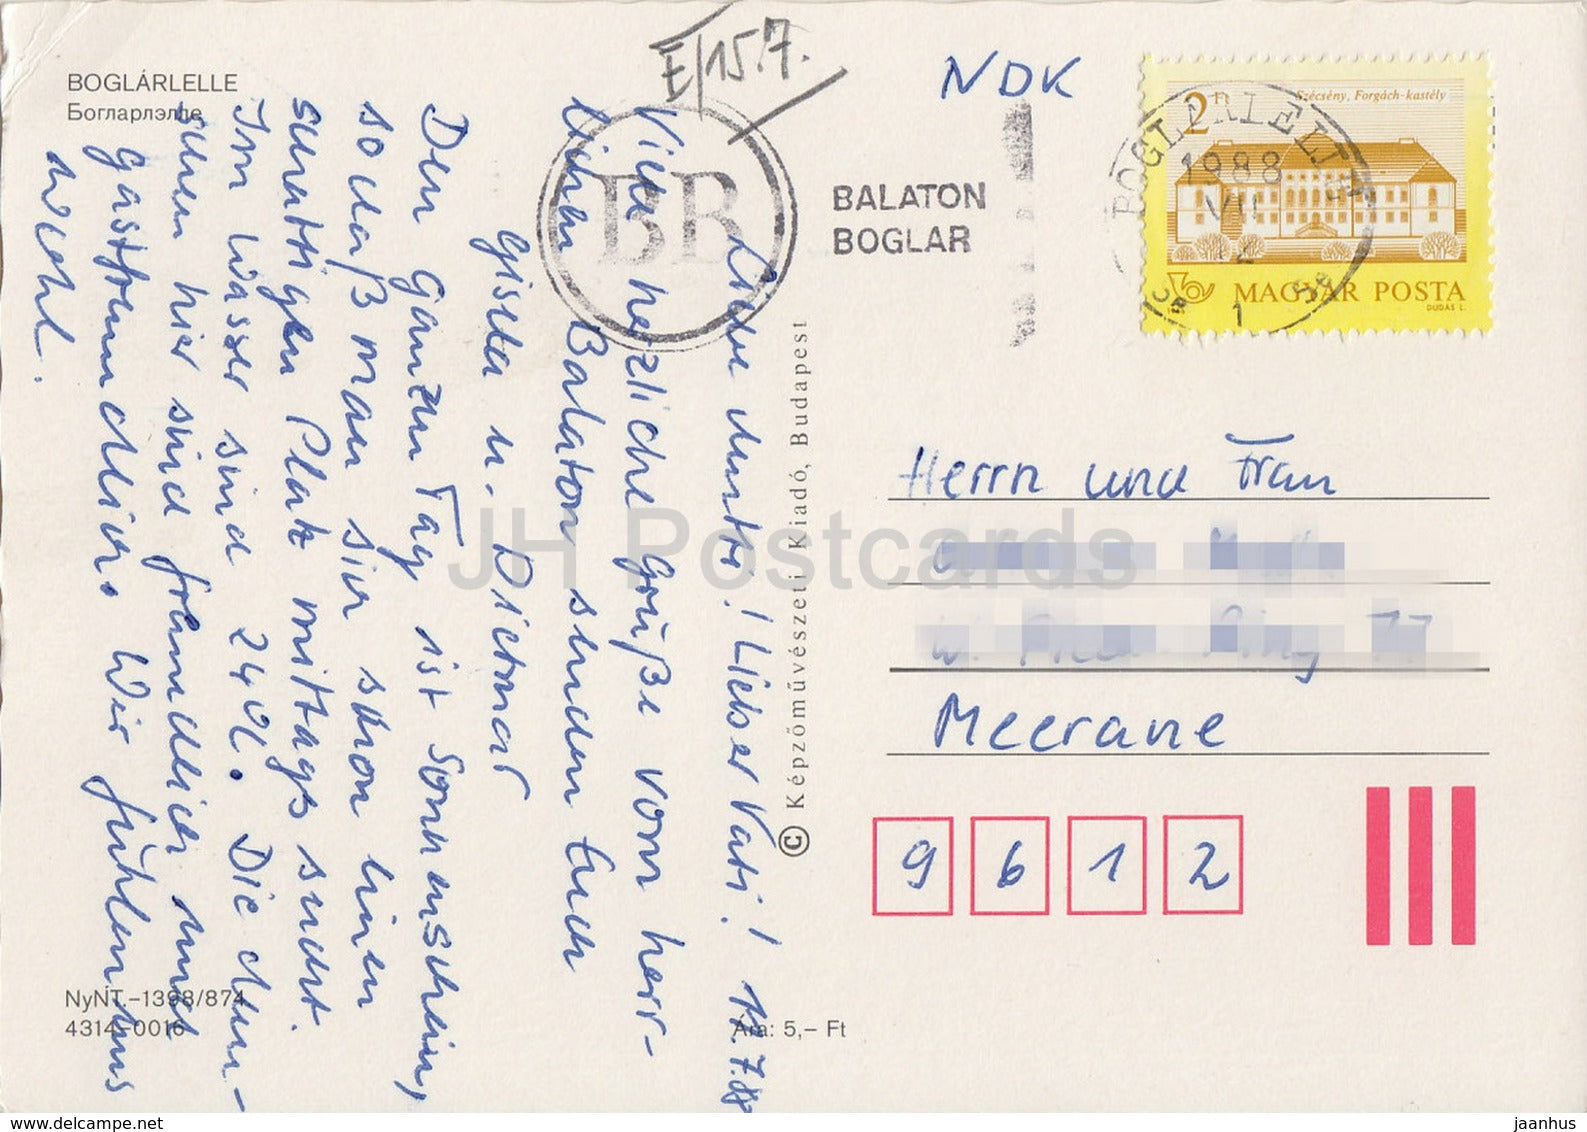 BOGLÁRLELLE
Богларлэлле
E/15.7.
NDK
BB
BALATON
BOGLAR
BOGLÁRLELLE
1988
VII
12
1
2 Ft
Szécsény, Forgách-kastély
MAGYAR POSTA
DUDÁS L.
Liebe Mutti! Lieber Vati! 12.7.88
Viele hezliche Grüße vom herr-
lichen Balaton senden Euch
Gisela u. Dietmar
Den ganzen Tag ist Sonnenschein,
so daß man sich schon einen
schattigen Platz mittags sucht.
Im Wasser sind 24°C. Die Men-
schen hier sind freundlich und
gastfreundlich. Wir fühlen uns
wohl.
© Képzőművészeti Kiadó, Budapest
Herrn und Frau
Meerane
9612
NyNT.-1398/874
4314-0016
Ára: 5,– Ft
JH Postcards
www.delcampe.net
jaanhus